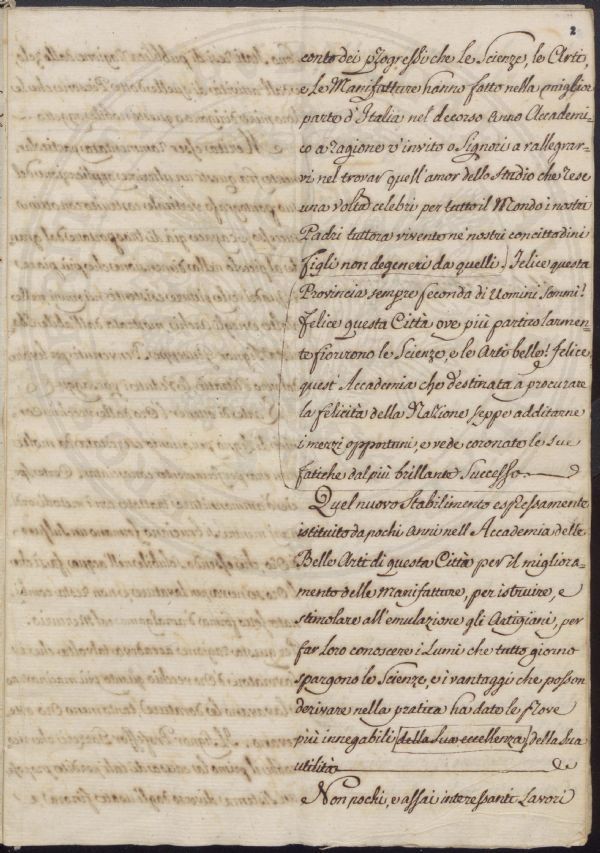 2
conto dei progressi che le Scienze, le Arti,
e le Manifatture hanno fatto nella miglior
parte d'Italia nel decorso anno Accademi-
co a ragione v'invito o Signori a rallegrar-
vi nel trovar quell'amor dello Studio che rese
una volta celebri per tutto il Mondo i nostri
Padri tuttora vivente ne' nostri concittadini
figli non degeneri da quelli. Felice questa
Provincia sempre feconda di Uomini sommi!
Felice questa Città ove più particolarmen-
te fiorirono le Scienze, e le Arti belle! Felice
quest'Accademia che destinata a procurare
la felicità della Nazione seppe additarne
i mezzi opportuni, e vede coronate le sue
fatiche dal più brillante Successo.
Quel nuovo Stabilimento espressamente
istituito da pochi anni nell'Accademia delle
Belle Arti di questa Città per il migliora-
mento delle Manifatture, per istruire, e
stimolare all'emulazione gli Artigiani, per
far loro conoscere i Lumi che tutto giorno
spargono le Scienze, e i vantaggi che posson
derivare nella pratica ha dato le prove
più innegabili [della sua eccellenza] della sua
utilità
Non pochi, e assai interessanti Lavori